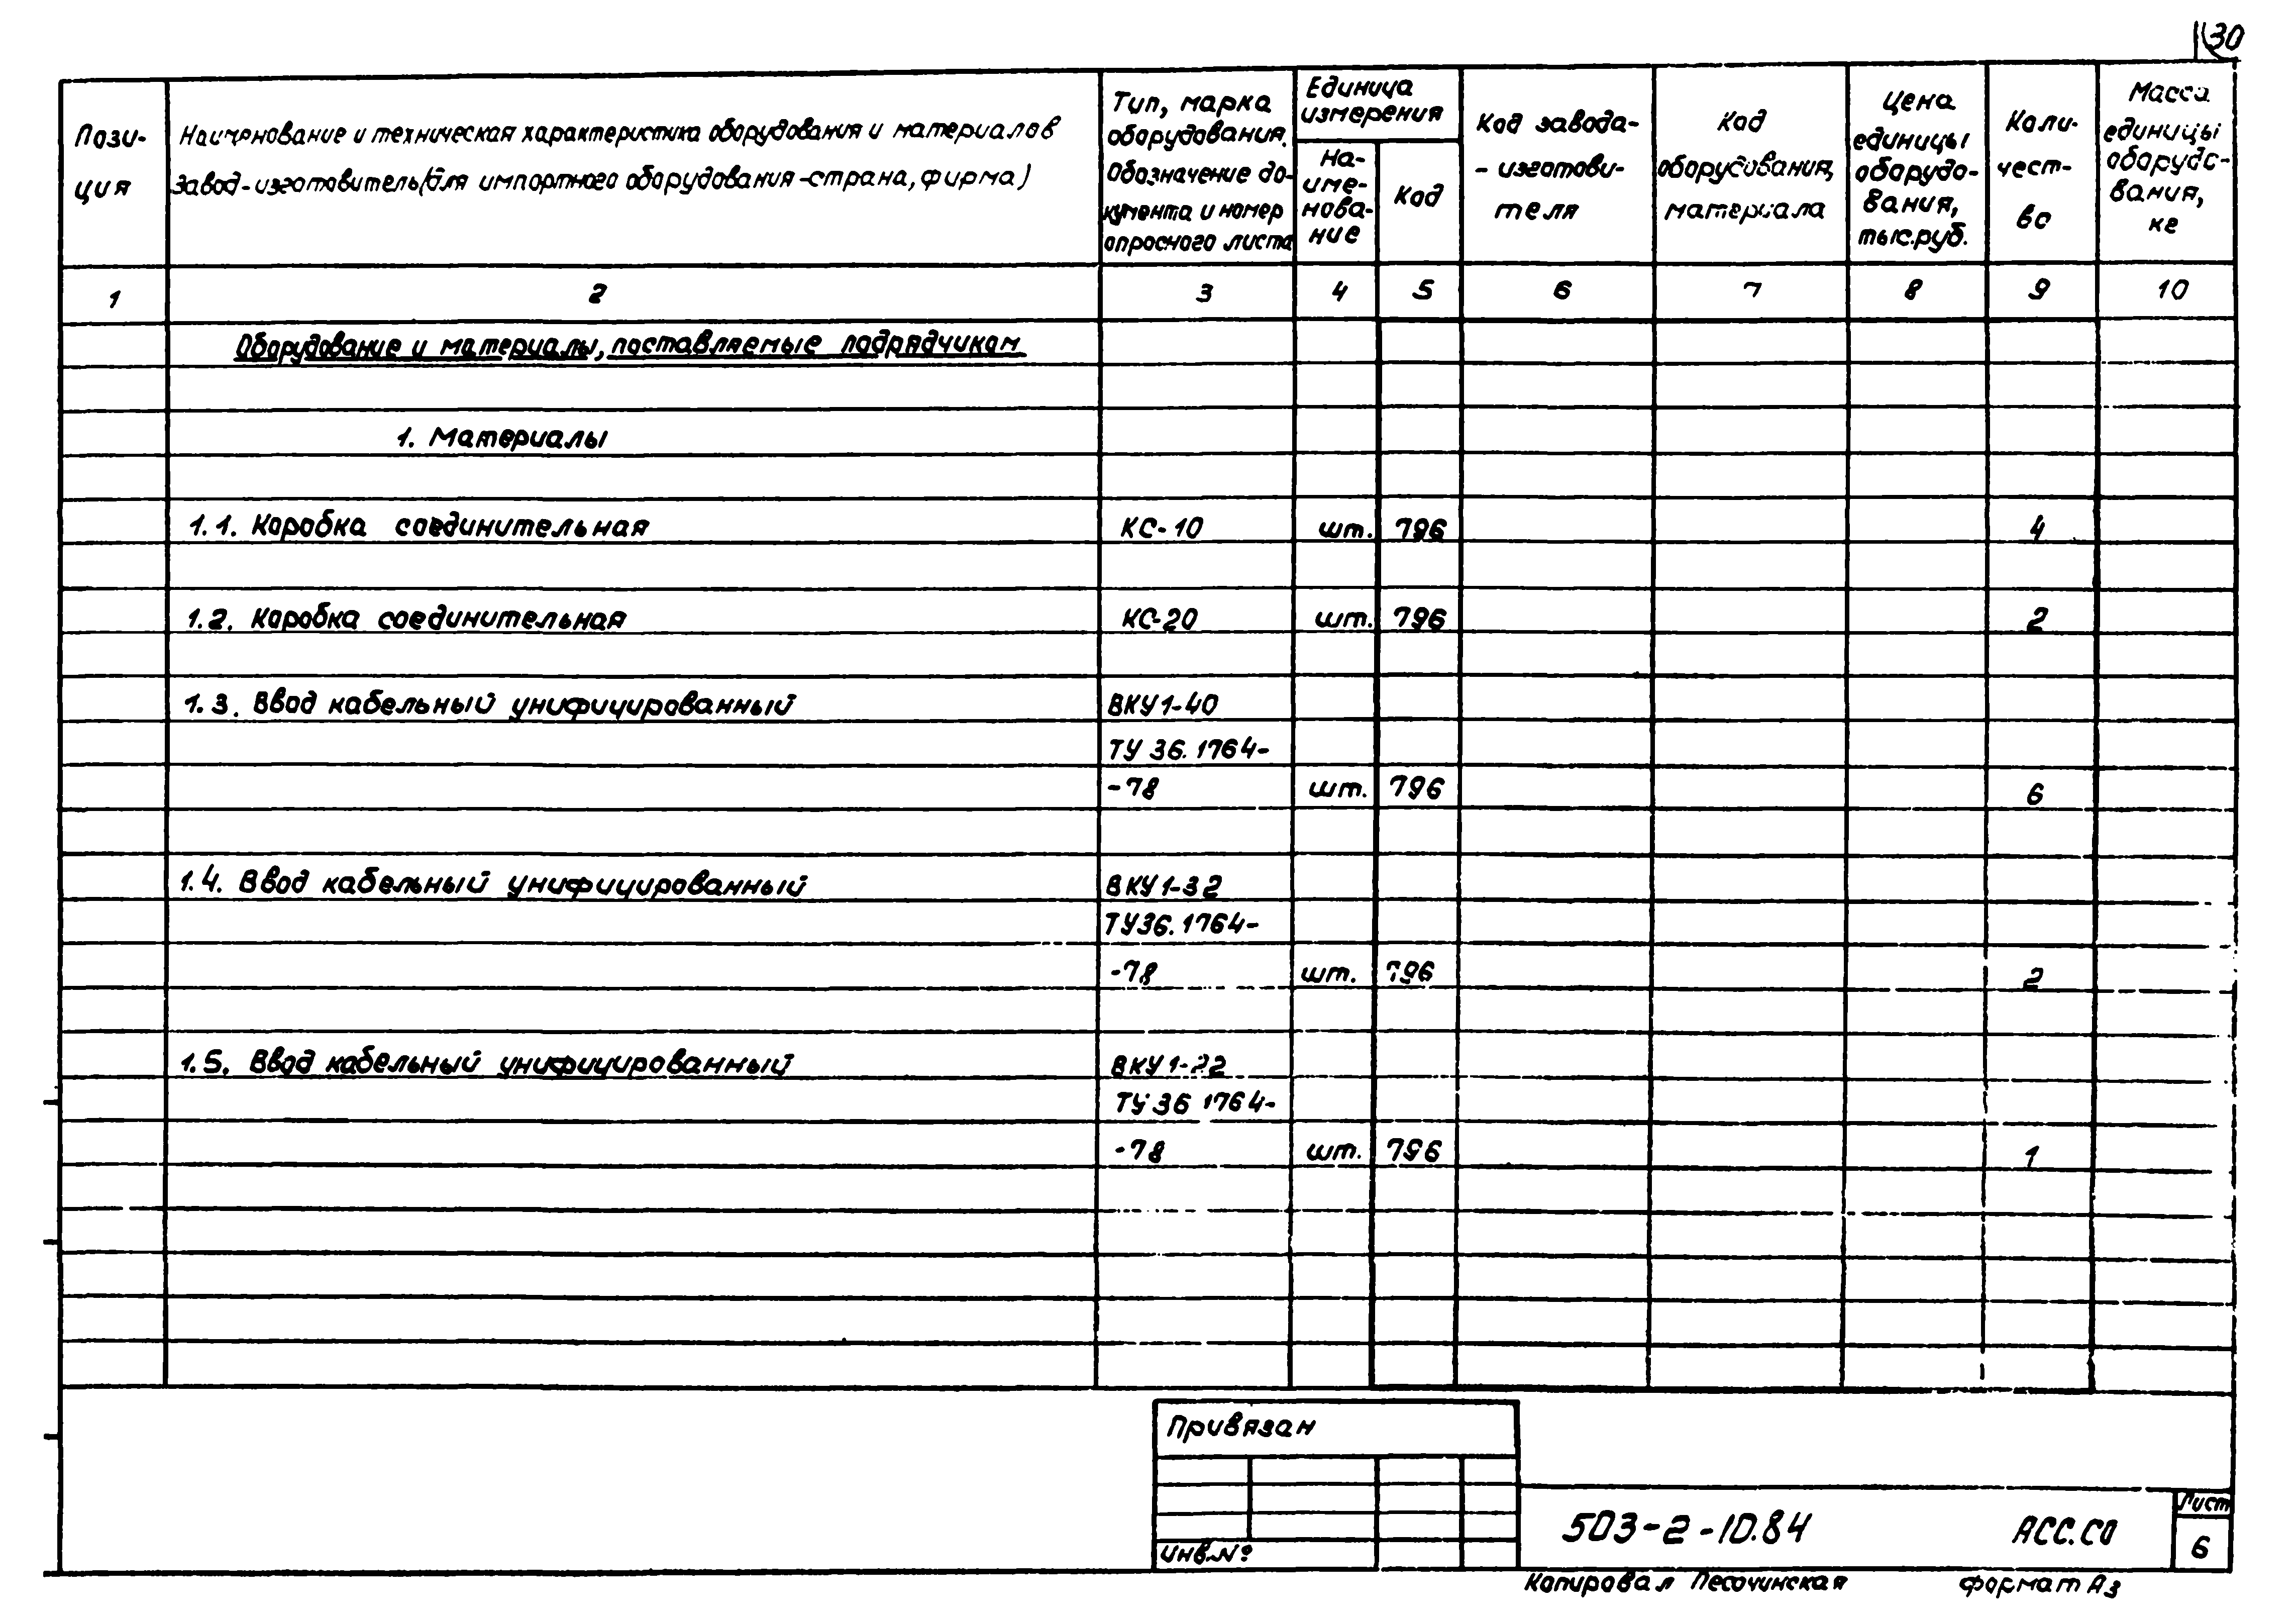 30
Пози-
ция
Наименование и техническая характеристика оборудования и материалов
завод-изготовитель (для импортного оборудования-страна, фирма)
Тип, марка
оборудования.
Обозначение до-
кумента и номер
опросного листа
Единица
измерения
На-
име-
нова-
ние
Код
Код завода-
-изготови-
теля
Код
оборудования,
материала
Цена
единицы
оборудо-
вания,
тыс.руб.
Коли-
чест-
во
Масса
единицы
оборудо-
вания,
кг
1 2 3 4 5 6 7 8 9 10
Оборудование и материалы, поставляемые подрядчиком
1. Материалы
1.1. Коробка соединительная КС-10 шт. 796 4
1.2. Коробка соединительная КС-20 шт. 796 2
1.3. Ввод кабельный унифицированный ВКУ1-40
ТУ 36.1764-
-78 шт. 796 6
1.4. Ввод кабельный унифицированный ВКУ1-32
ТУ36.1764-
-78 шт. 796 2
1.5. Ввод кабельный унифицированный ВКУ1-22
ТУ 36 1764-
-78 шт. 796 1
Привязан
Инв.№
503-2-10.84 АСС.СО
Лист
6
Копировал Песочинская формат А3